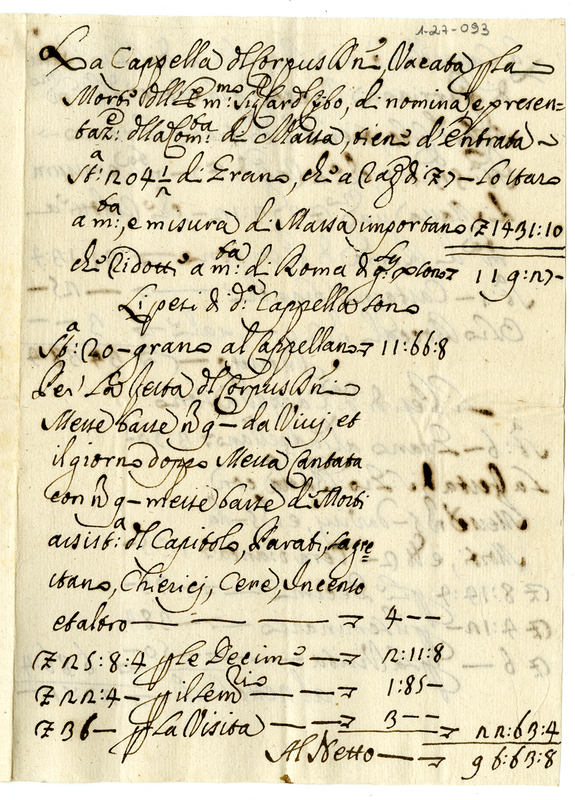 1-27-093
La Cappella dl Corpus Dni Vacata p la
Morte dll Emmo Sigr Card Cybo, di nomina e presen-
taze dlla Comta di Massa, tiene d'Entrata
Sta: 204 1/2 di Grano, che a rage di 7 - Lo staro
a mta, e misura di Massa importano 1431:10
che ridotti a mta: di Roma di sono 119:2-
Li pesi di da Cappella sono
Sta: 20-grano al Cappellano 11:66:8
Per La festa dl Corpus Dni
Messe basse n 9- da Vivi, et
il giorno doppo Messa Cantata
con n 9- messe basse di Morti
assista: dl Capitolo, Parati, Sagre
stano, Chierici, Cere, Incenso
et altro 4--
25:8:4 p le Decime 2:11:8
22:4- p il Semrio 1:85-
36- p La Visita 3-- 22:63:4
Al Netto 96:63:8